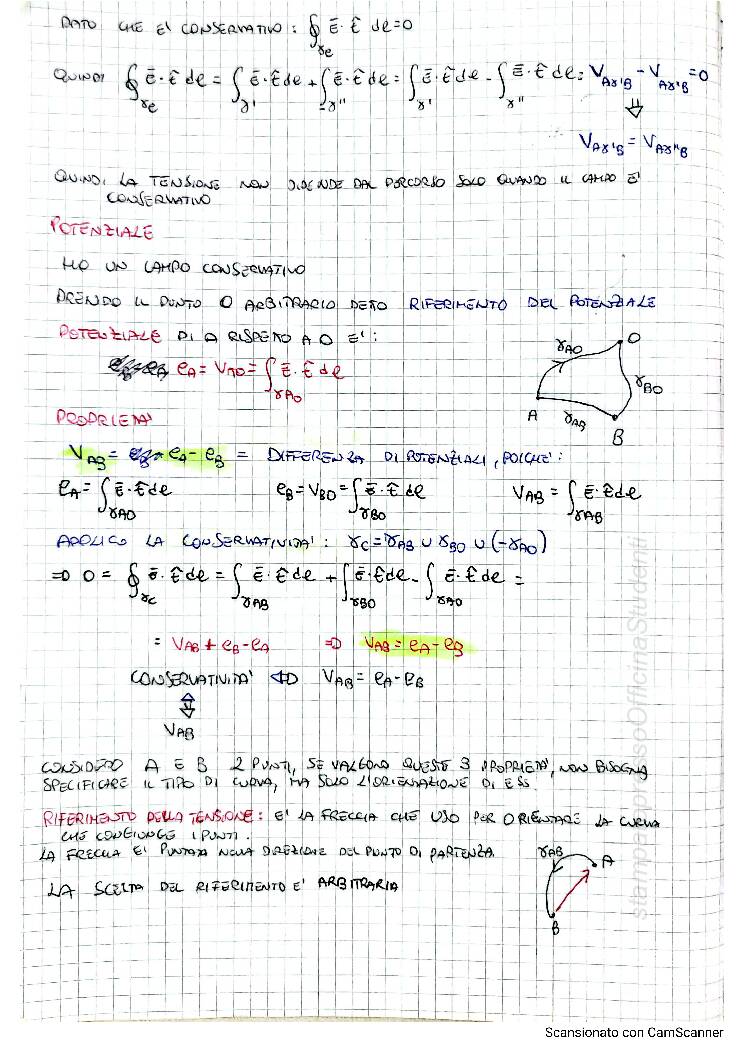 DATO CHE E' CONSERVATIVO: ∮_γc ē·t̂ dl = 0
QUINDI ∮_γc ē·t̂ dl = ∫_γ' ē·t̂ dl + ∫_-γ'' ē·t̂ dl = ∫_γ' ē·t̂ dl - ∫_γ'' ē·t̂ dl = V_Aγ'B - V_Aγ'B = 0
⇓
V_Aγ'B = V_Aγ''B
QUINDI LA TENSIONE NON DIPENDE DAL PERCORSO SOLO QUANDO IL CAMPO E'
CONSERVATIVO
POTENZIALE
HO UN CAMPO CONSERVATIVO
PRENDO IL PUNTO O ARBITRARIO DETTO RIFERIMENTO DEL POTENZIALE
POTENZIALE DI A RISPETTO A O E':
e_A = V_AO = ∫_γAO ē·t̂ dl
γAO
O
γBO
A
γAB
B
PROPRIETA'
V_AB = e_A - e_B = DIFFERENZA DI POTENZIALI, POICHE':
e_A = ∫_γAO ē·t̂ dl e_B = V_BO = ∫_γBO ē·t̂ dl V_AB = ∫_γAB ē·t̂ dl
APPLICO LA CONSERVATIVITA': γc = γAB ∪ γBO ∪ (-γAO)
⇒ 0 = ∮_γc ē·t̂ dl = ∫_γAB ē·t̂ dl + ∫_γBO ē·t̂ dl - ∫_γAO ē·t̂ dl =
= V_AB + e_B - e_A ⇒ V_AB = e_A - e_B
CONSERVATIVITA' ⇔ V_AB = e_A - e_B
⇕
V_AB
CONSIDERO A E B 2 PUNTI, SE VALGONO QUESTE 3 PROPRIETA', NON BISOGNA
SPECIFICARE IL TIPO DI CURVA, MA SOLO L'ORIENTAZIONE DI ESS.
RIFERIMENTO DELLA TENSIONE: E' LA FRECCIA CHE USO PER ORIENTARE LA CURVA
CHE CONGIUNGE I PUNTI.
LA FRECCIA E' PUNTATA NELLA DIREZIONE DEL PUNTO DI PARTENZA
LA SCELTA DEL RIFERIMENTO E' ARBITRARIA
γAB
A
B
stampatopressoOfficinaStudenti
Scansionato con CamScanner